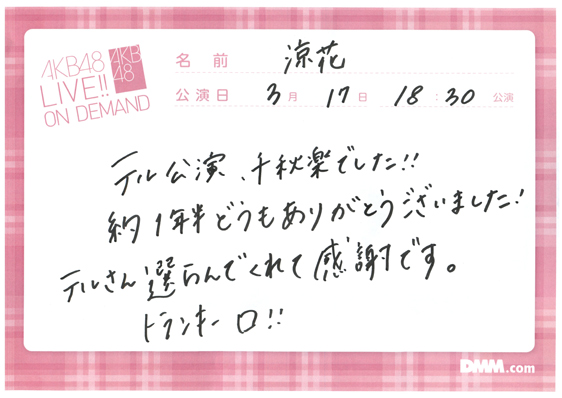 AKB48
LIVE!!
ON DEMAND
AKB
48
名前 涼花
公演日 3月 17日 18:30 公演
テル公演、千秋楽でした!!
約1年半どうもありがとうございました!
テルさん選らんでくれて感謝です。
ドランキーロ!!
DMM.com